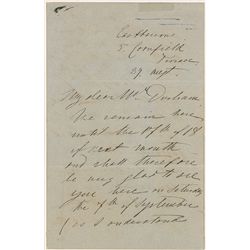 Eastbourne
5 Cornfield
Terrace
27 August.
My dear Mr Durham
We remain here
until the 17th or 18
of next month
and shall therefore
be very glad to see
you here on Saturday
the 7th of September
(as I understand